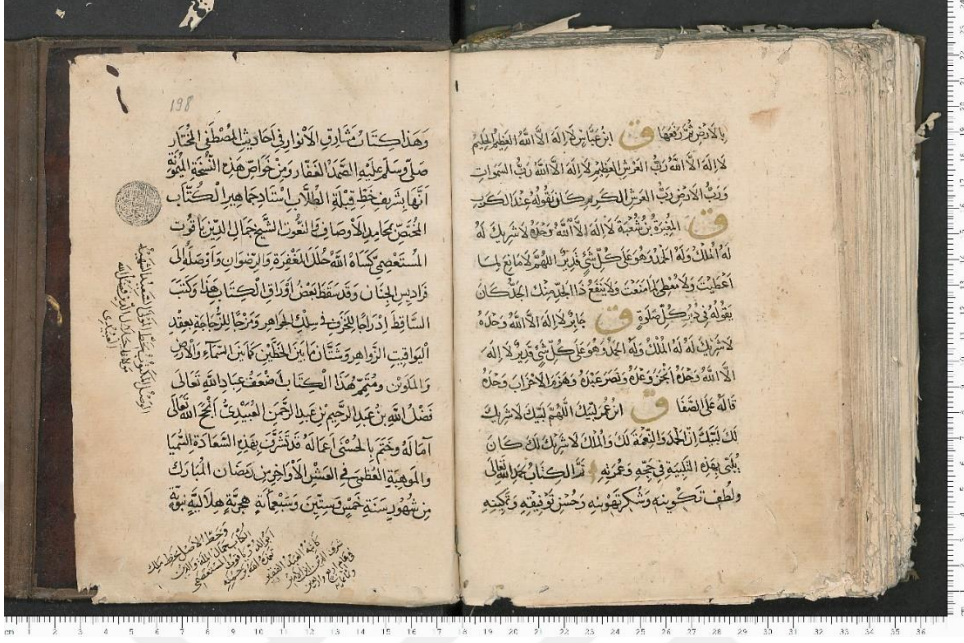 بالأرض ثم رفعها ق ابن عباس لا إله إلا الله العظيم الحليم
لا إله إلا الله رب العرش العظيم لا إله إلا الله رب السموات
ورب الأرض رب العرش الكريم كان يقوله عند الكرب
ق المغيرة بن شعبة لا إله إلا الله وحده لا شريك له
له الملك وله الحمد وهو على كل شيء قدير اللهم لا مانع لما
أعطيت ولا معطي لما منعت ولا ينفع ذا الجد منك الجد كان
يقوله في دبر كل صلوة ق جابر لا إله إلا الله وحده
لا شريك له له الملك وله الحمد وهو على كل شيء قدير لا إله
إلا الله وحده أنجز وعده ونصر عبده وهزم الأحزاب وحده
قاله على الصفا ق ابن عمر لبيك اللهم لبيك لا شريك
لك لبيك إن الحمد والنعمة لك والملك لا شريك لك كان
يلبي بهذه التلبية في حجه وعمرته تم الكتاب بحمد الله تعالى
ولطف تكوينه وشكر تهوينه وحسن توفيقه وتمكينه
198
وهذا كتاب مشارق الأنوار في أحاديث المصطفى المختار
صلى وسلم عليه الصمد الغفار ومن خواص هذه النسخة الميمونة
أنها بشريف خط قبلة الطلاب استاد جماهير الكتاب
المختص بمحامد الأوصاف والنعوت الشيخ جمال الدين ياقوت
المستعصمي كساه الله حلل المغفرة والرضوان وأوصله إلى
فراديس الجنان وقد سقط بعض أوراق الكتاب هذا وكتب
الساقط إدراجا للخزف في سلك الجواهر ومزجا للزجاجة بعقد
اليواقيت الزواهر وشتان ما بين الخطين كما بين السماء والأرض
والملوين ومتمم هذا الكتاب أضعف عباد الله تعالى
فضل الله بن عبد الرحيم بن عبد الرحمن العبيدي أنجح الله تعالى
آماله وختم بالحسنى أعماله قد تشرف بهذه السعادة الشميا
والموهبة العظمى في العشر الأواخر من رمضان المبارك
من شهور سنة خمس وستين وسبعمائة هجرية هلالية نبوية
وخط الأصل خط ملك
الكتاب جمال الملة والدين